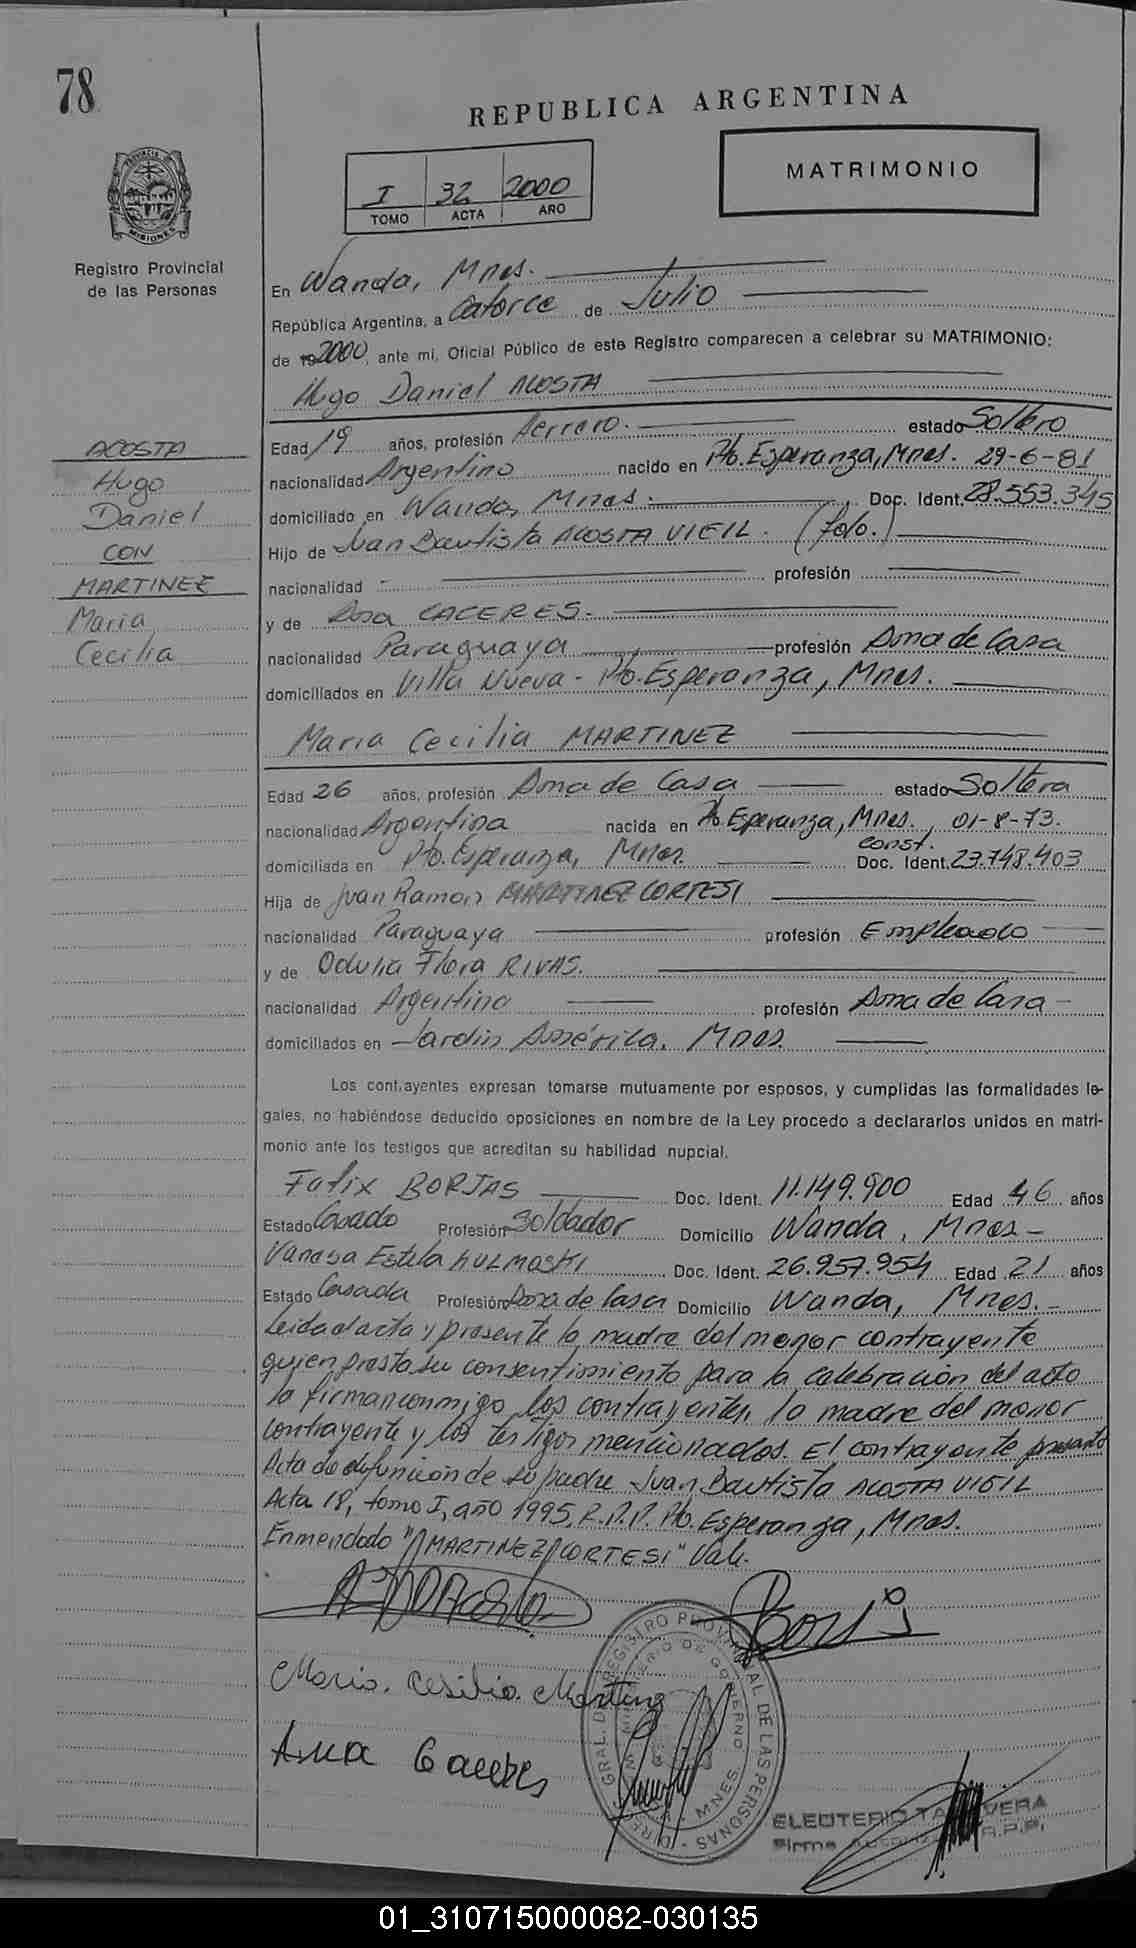 78
REPUBLICA ARGENTINA
MATRIMONIO
I 32 2000
TOMO ACTA AÑO
PROVINCIA
MISIONES
Registro Provincial
de las Personas
En Wanda, Mnes.
República Argentina, a Catorce de Julio
de 2000, ante mi, Oficial Público de este Registro comparecen a celebrar su MATRIMONIO:
Hugo Daniel ACOSTA
ACOSTA
Hugo
Daniel
CON
MARTINEZ
Maria
Cecilia
Edad 19 años, profesión Herrero. estado Soltero
nacionalidad Argentino nacido en Pto. Esperanza, Mnes. 29-6-81
domiciliado en Wanda, Mnes. Doc. Ident. 28.553.345
Hijo de Juan Bautista ACOSTA VIEIL. (fdo.)
nacionalidad profesión
y de CACERES.
nacionalidad Paraguaya profesión Ama de Casa
domiciliados en Villa Nueva - Pto. Esperanza, Mnes.
Maria Cecilia MARTINEZ
Edad 26 años, profesión Ama de Casa estado Soltera
nacionalidad Argentina nacida en Pto Esperanza, Mnes., 01-8-73.
domiciliada en Pto. Esperanza, Mnes. const. Doc. Ident. 23.748.403
Hija de Juan Ramon MARTINEZ CORTESI
nacionalidad Paraguaya profesión Empleado
y de Odulia Flora RIVAS.
nacionalidad Argentina profesión Ama de Casa
domiciliados en Jardin América, Mnes.
Los contrayentes expresan tomarse mutuamente por esposos, y cumplidas las formalidades le-
gales, no habiéndose deducido oposiciones en nombre de la Ley procedo a declararlos unidos en matri-
monio ante los testigos que acreditan su habilidad nupcial.
Felix BORJAS Doc. Ident. 11.149.900 Edad 46 años
Estado Casado Profesión Soldador Domicilio Wanda, Mnes -
Vanesa Estela KULMOSKI Doc. Ident. 26.957.954 Edad 21 años
Estado Casada Profesión Ama de Casa Domicilio Wanda, Mnes. -
Leida el acta y presente la madre del menor contrayente
quien presta su consentimiento para la celebracion del acto
la firman conmigo los contrayentes, la madre del menor
contrayente y los testigos mencionados. El contrayente presento
Acta de defuncion de su padre Juan Bautista ACOSTA VIEIL
Acta 18, tomo I, año 1995, R.P.P. Pto. Esperanza, Mnes.
Enmendado "MARTINEZ CORTESI" Vale.
Maria. Cesilia. Martinez
DIREC. GRAL. DE REGISTRO PROVINCIAL DE LAS PERSONAS
MINISTERIO DE GOBIERNO
MNES.
ELEOTERIO TALAVERA
Firma Autorizada R.P.P.
01_310715000082-030135